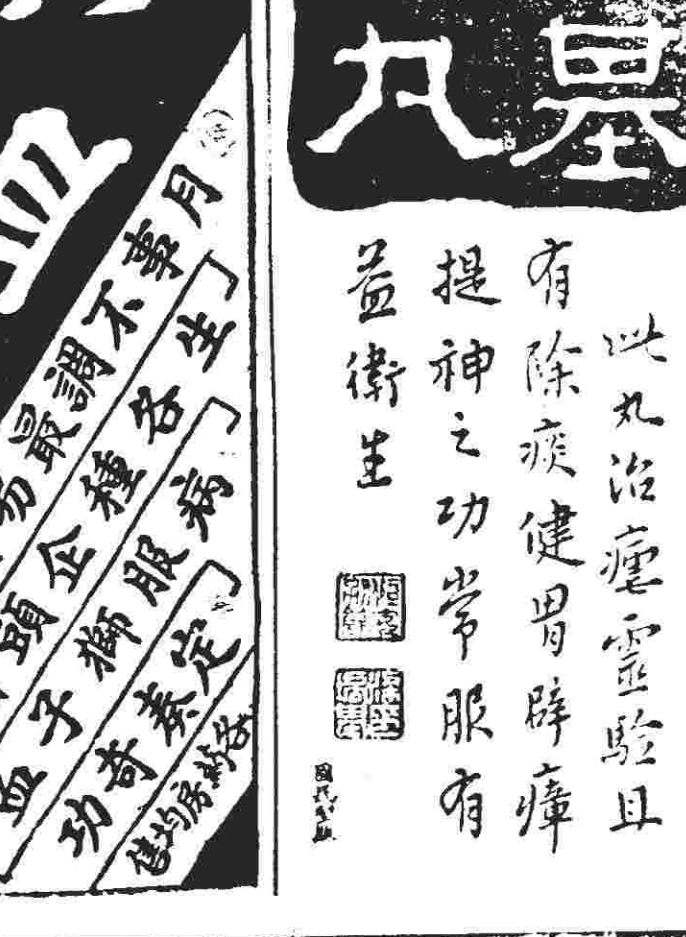 丸
此丸治瘧靈驗且
有除痰健胃辟瘴
提神之功常服有
益衛生
月事不調最易
生各種企頭
病服獅子血
定奏奇功
各葯房均售